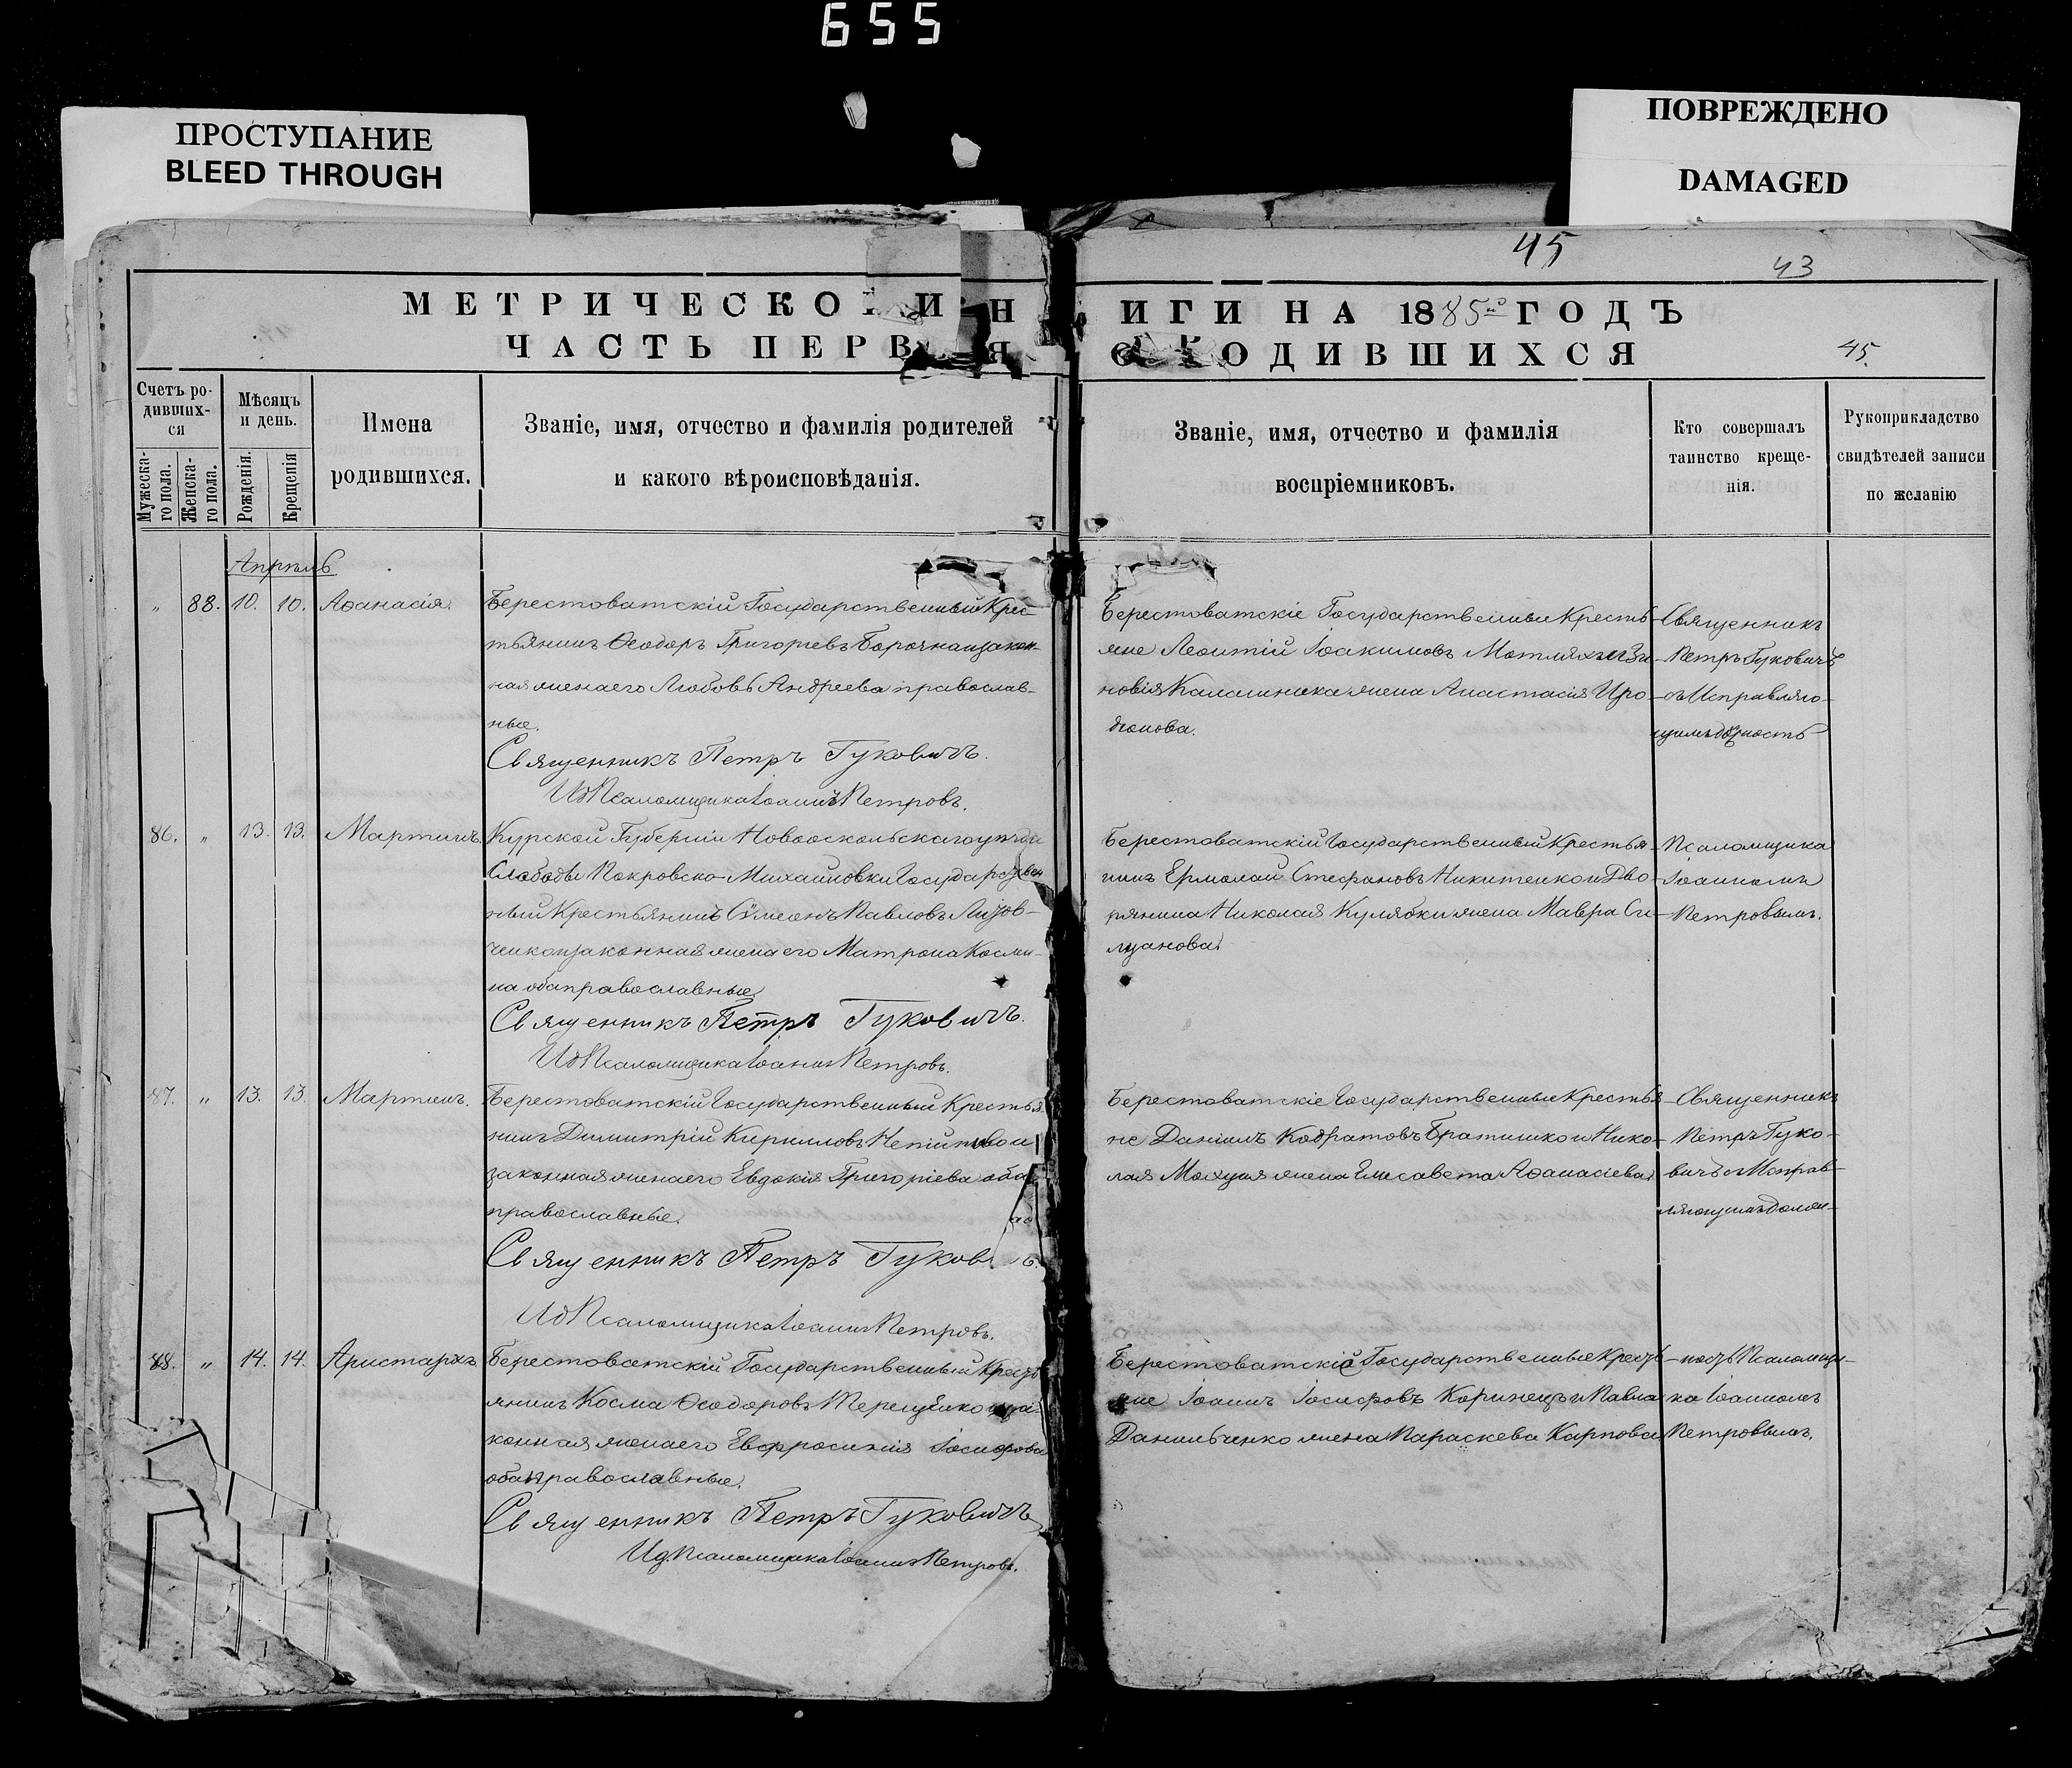 655
ПРОСТУПАНИЕ
BLEED THROUGH
ПОВРЕЖДЕНО
DAMAGED
45
43
МЕТРИЧЕСКОЙ КНИГИ НА 1885й ГОДЪ
ЧАСТЬ ПЕРВАЯ О РОДИВШИХСЯ
45.
Счетъ ро-
дивших-
ся
Мужеска-
го пола.
Женска-
го пола.
Мѣсяцъ
и день.
Рожденія.
Крещенія
Имена
родившихся.
Званіе, имя, отчество и фамилія родителей
и какого вѣроисповѣданія.
Званіе, имя, отчество и фамилія
воспріемниковъ.
Кто совершалъ
таинство креще-
нія.
Рукоприкладство
свидѣтелей записи
по желанію
Апрѣль
" 88. 10. 10. Аѳанасія.
Берестоватскій Государственный Крес-
тьянинъ Ѳеодоръ Григорьевъ и закон-
ная жена его Любовь Андреева православ-
ные.
Священникъ Петръ Гуковичъ.
И д Псаломщика Іоаннъ Петровъ.
Берестоватскіе Государственные Кресть-
яне Леонтій Іоакимовъ и Зи-
новія Калашника жена Анастасія Иро-
діонова.
Священникъ
Петръ Гуковичъ
съ Исправляю-
щимъ должность
86. " 13. 13. Мартинъ.
Курской Губерніи Новооскольскаго уѣзда
Слободы Покровско-Михайловки Государствен
ный Крестьянинъ Сѵмеонъ Павловъ Лизов-
ченко и законная жена его Матрона Косми-
на оба православные.
Священникъ Петръ Гуковичъ.
И д Псаломщика Іоаннъ Петровъ.
Берестоватскій Государственный Крестья-
нинъ Ермолай Стефановъ Никитенко и Дво-
рянина Николая Кулябки жена Мавра Си-
луанова.
Псаломщика
Іоанномъ
Петровымъ.
87. " 13. 13. Мартинъ.
Берестоватскій Государственный Крестья
нинъ Димитрій Кирилловъ и
законная жена его Евдокія Григоріева оба
православные.
Священникъ Петръ Гукович ъ.
И д Псаломщика Іоаннъ Петровъ.
Берестоватскіе Государственные Крестья-
не Даніилъ Кодратовъ Братишко и Нико-
лая жена Елисавета Аѳанасіева.
Священникъ
Петръ Гуко-
вичъ съ Исправ-
ляющимъ долж-
88. " 14. 14. Аристархъ
Берестоватскій Государственный Кресть
янинъ Косма Ѳеодоровъ Терещенко и за-
конная жена его Евфросинія Іосифова
оба православные.
Священникъ Петръ Гуковичъ
И д Псаломщика Іоаннъ Петровъ.
Берестоватскіе Государственные Кресть-
яне Іоаннъ Іосифовъ Коринецъ и Павла
Данильченко жена Параскева Карпова
ность Псаломщи-
ка Іоанномъ
Петровымъ.